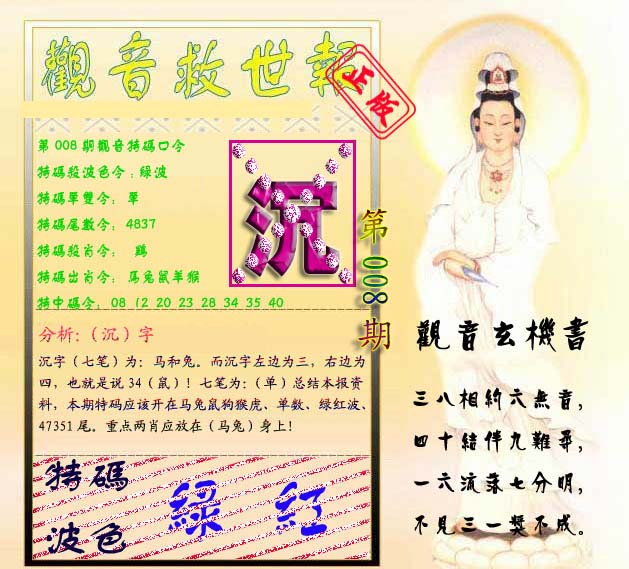 觀音救世報
正版
第008期觀音特碼口令
特碼殺波色令:綠波
特碼單雙令: 單
特碼尾數令: 4837
特碼殺肖令: 鷄
特碼出肖令: 馬兔鼠羊猴
特中碼令: 08 12 20 23 28 34 35 40
沉
第008期
分析:（沉）字
沉字（七笔）为：马和兔。而沉字左边为三，右边为
四，也就是说34（鼠）！七笔为：（单）总结本报资
料，本期特码应该开在马兔鼠狗猴虎、单数、绿红波、
47351尾。重点两肖应放在（马兔）身上！
特碼
波色
綠 紅
觀音玄機書
三八相約六無音,
四十結伴九難尋,
一六流落七分明,
不見三一獎不成。